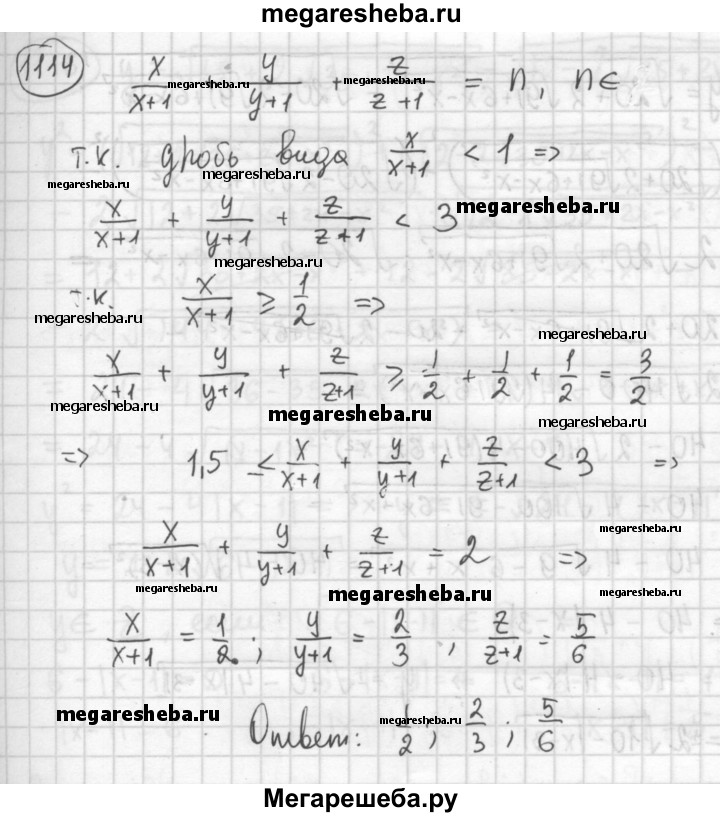 megaresheba.ru
1114
x/(x+1) + y/(y+1) + z/(z+1) = n, n∈
megaresheba.ru megaresheba.ru
т.к. дробь вида x/(x+1) < 1 =>
megaresheba.ru megaresheba.ru
x/(x+1) + y/(y+1) + z/(z+1) < 3 megaresheba.ru
megaresheba.ru
т.к. x/(x+1) ⩾ 1/2 =>
megaresheba.ru megaresheba.ru
x/(x+1) + y/(y+1) + z/(z+1) ⩾ 1/2 + 1/2 + 1/2 = 3/2
megaresheba.ru megaresheba.ru megaresheba.ru
=> 1,5 ≤ x/(x+1) + y/(y+1) + z/(z+1) < 3 =>
megaresheba.ru
x/(x+1) + y/(y+1) + z/(z+1) = 2 =>
megaresheba.ru megaresheba.ru
x/(x+1) = 1/2; y/(y+1) = 2/3, z/(z+1) = 5/6
megaresheba.ru megaresheba.ru
Ответ: 1/2; 2/3; 5/6
Мегарешеба.ру